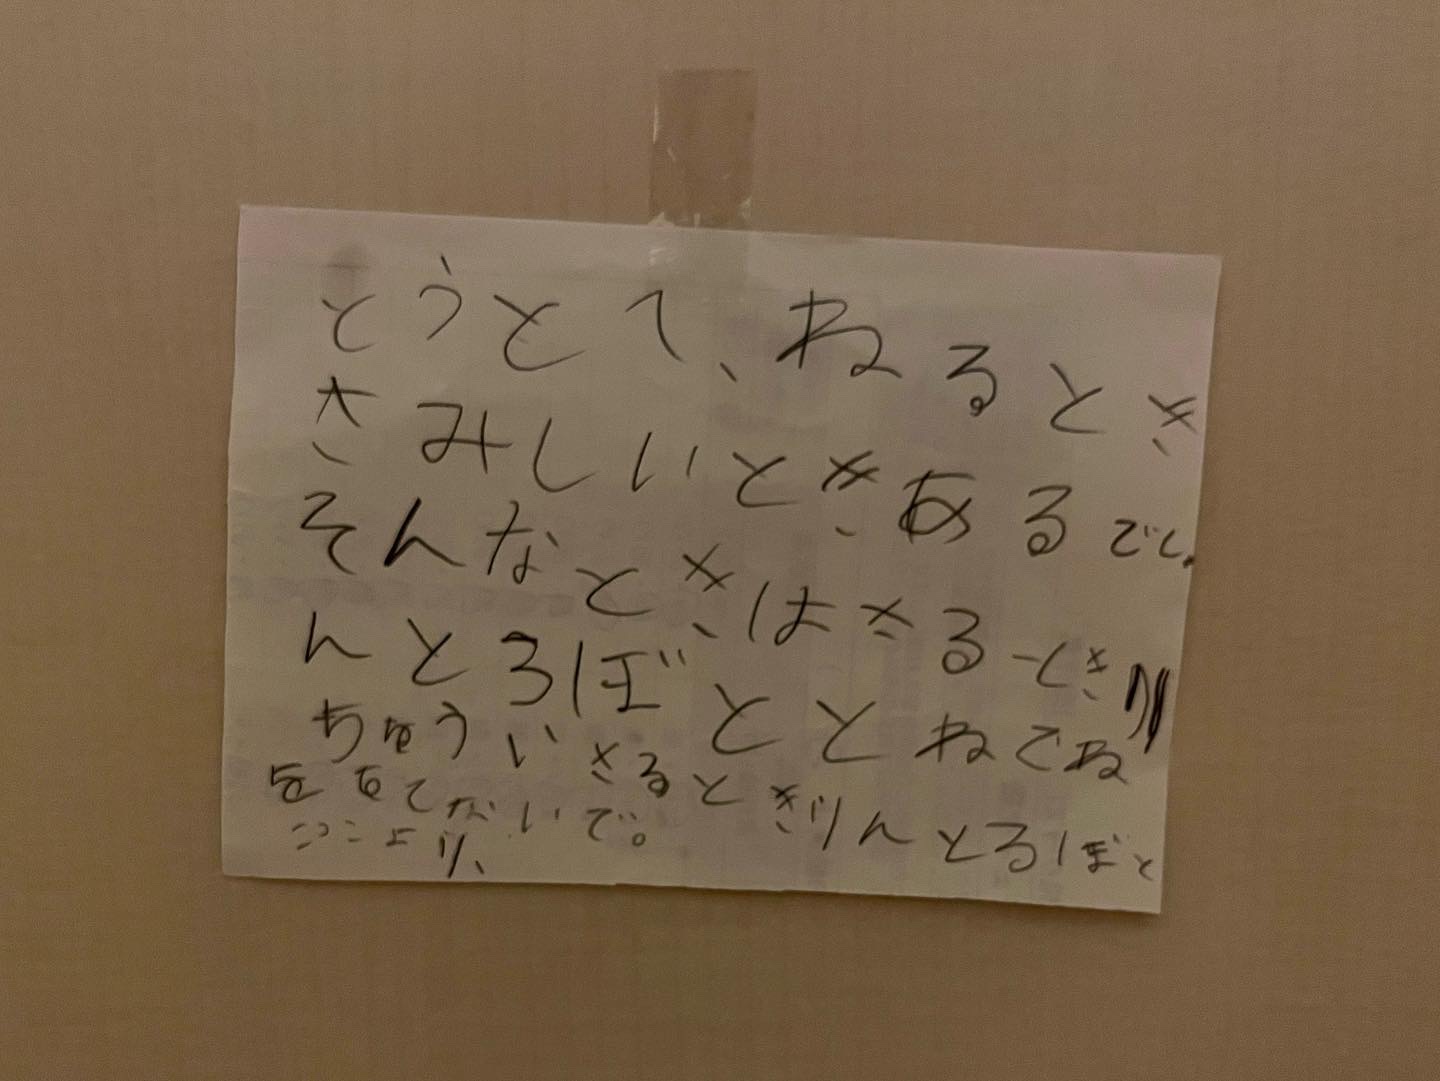 とうとへ、ねるとき
さみしいときあるでし。
そんなときはさるときり
んとろぼととねてね
ちゅういさるときりんとろぼと
をもてかないで。
こっこより、